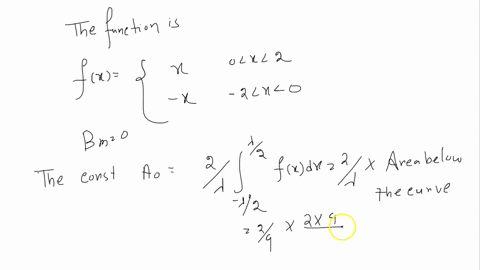 The function is
f(x) = { x 0 < x < 2
-x -2 < x < 0
Bm = 0
The const A0 = 2/λ ∫_{-λ/2}^{λ/2} f(x) dx = 2/λ × Area below
the curve
= 2/4 × 2×4